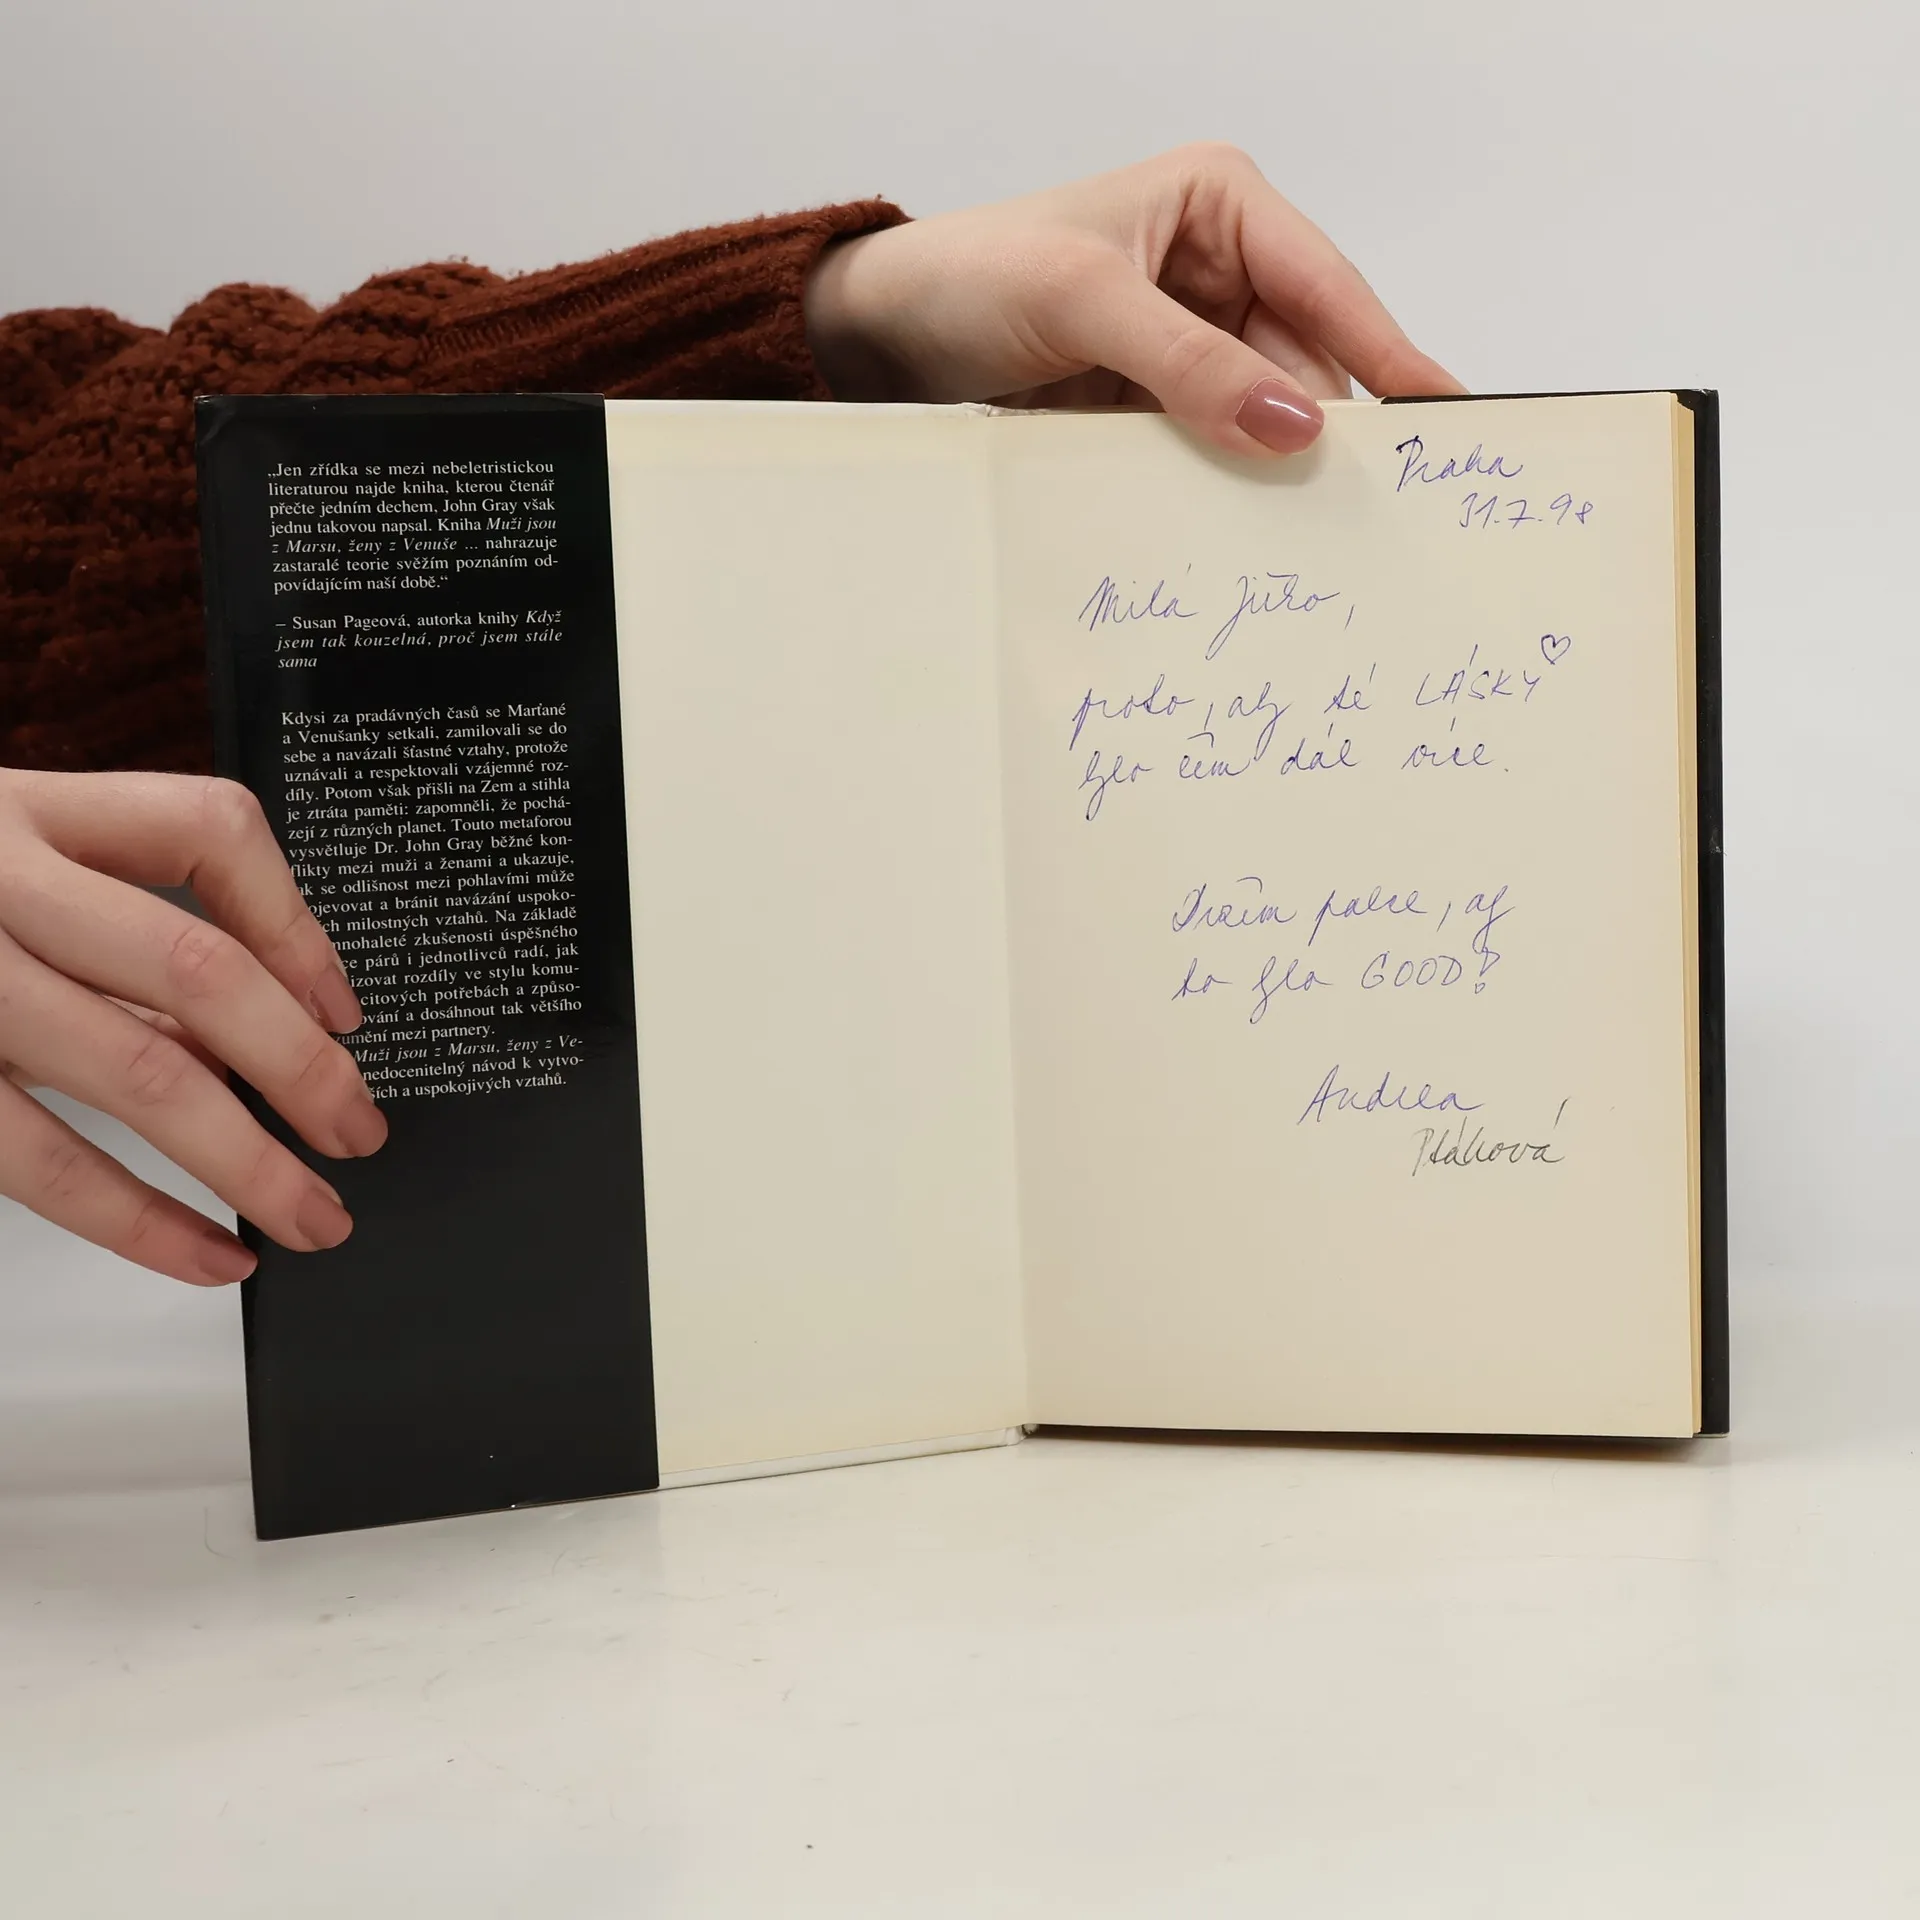 „Jen zřídka se mezi nebeletristickou
literaturou najde kniha, kterou čtenář
přečte jedním dechem, John Gray však
jednu takovou napsal. Kniha Muži jsou
z Marsu, ženy z Venuše ... nahrazuje
zastaralé teorie svěžím poznáním od-
povídajícím naší době.“
– Susan Pageová, autorka knihy Když
jsem tak kouzelná, proč jsem stále
sama
Kdysi za pradávných časů se Marťané
a Venušanky setkali, zamilovali se do
sebe a navázali šťastné vztahy, protože
uznávali a respektovali vzájemné roz-
díly. Potom však přišli na Zem a stihla
je ztráta paměti: zapomněli, že pochá-
zejí z různých planet. Touto metaforou
vysvětluje Dr. John Gray běžné kon-
flikty mezi muži a ženami a ukazuje,
ak se odlišnost mezi pohlavími může
ojevovat a bránit navázání uspoko-
ch milostných vztahů. Na základě
mnohaleté zkušenosti úspěšného
ce párů i jednotlivců radí, jak
izovat rozdíly ve stylu komu-
citových potřebách a způso-
ování a dosáhnout tak většího
zumění mezi partnery.
Muži jsou z Marsu, ženy z Ve-
nedocenitelný návod k vytvo-
ších a uspokojivých vztahů.
Praha
31.7.98
Milá Jiřko,
proto, aby té LÁSKY
bylo čím dál více.
Držím palce, ať
to bylo GOOD!
Andrea
Ptáková